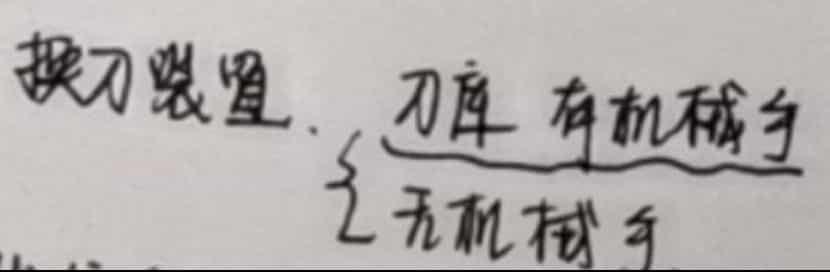 换刀装置. { 刀库 有机械手
无机械手